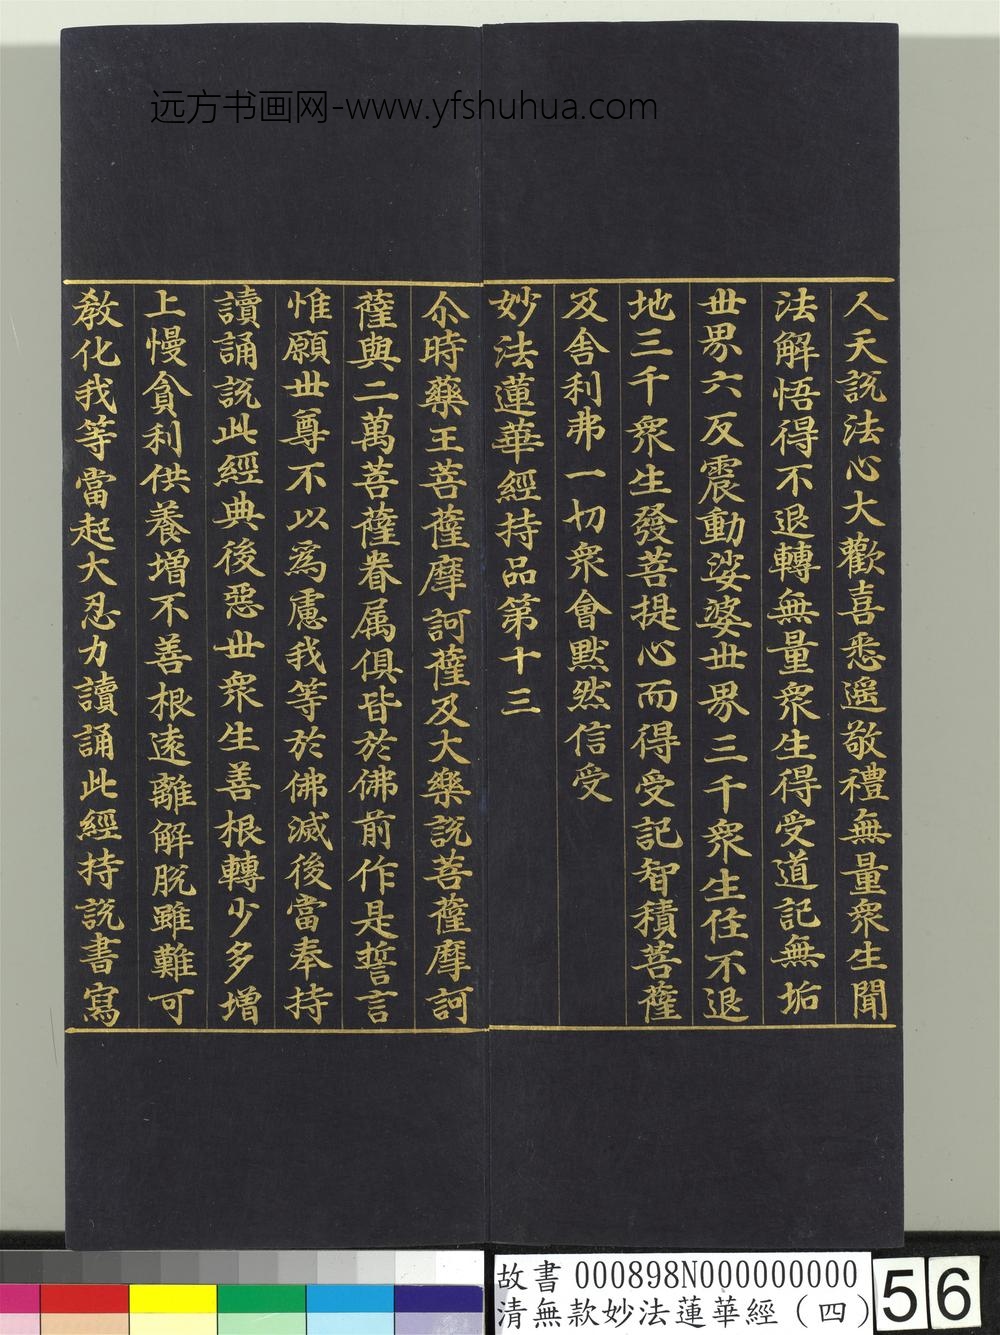 远方书画网-www.yfshuhua.com
人天說法心大歡喜悉遥敬禮無量衆生聞
法解悟得不退轉無量衆生得受道記無垢
世界六反震動娑婆世界三千衆生住不退
地三千衆生發菩提心而得受記智積菩薩
及舍利弗一切衆會默然信受
妙法蓮華經持品第十三
尒時藥王菩薩摩訶薩及大樂說菩薩摩訶
薩與二萬菩薩眷属俱皆於佛前作是誓言
惟願世尊不以為慮我等於佛滅後當奉持
讀誦說此經典後惡世衆生善根轉少多增
上慢貪利供養增不善根遠離解脫雖難可
教化我等當起大忍力讀誦此經持說書寫
故書 000898N000000000
清無款妙法蓮華經(四)
56